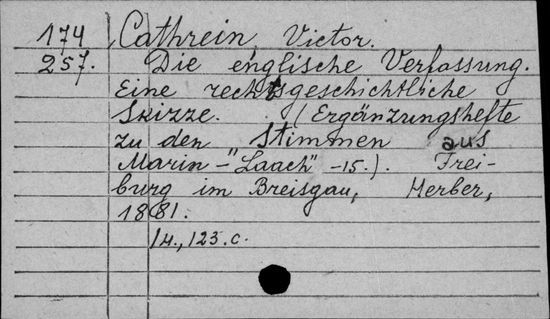 174 Cathrein, Victor.
257. Die englische Verfassung.
Eine rechtsgeschichtliche
Skizze. (Ergänzungshefte
zu den Stimmen aus
Marin-"Laach" -15.). Frei-
burg im Breisgau, Herber,
1881.
14., 123.c.